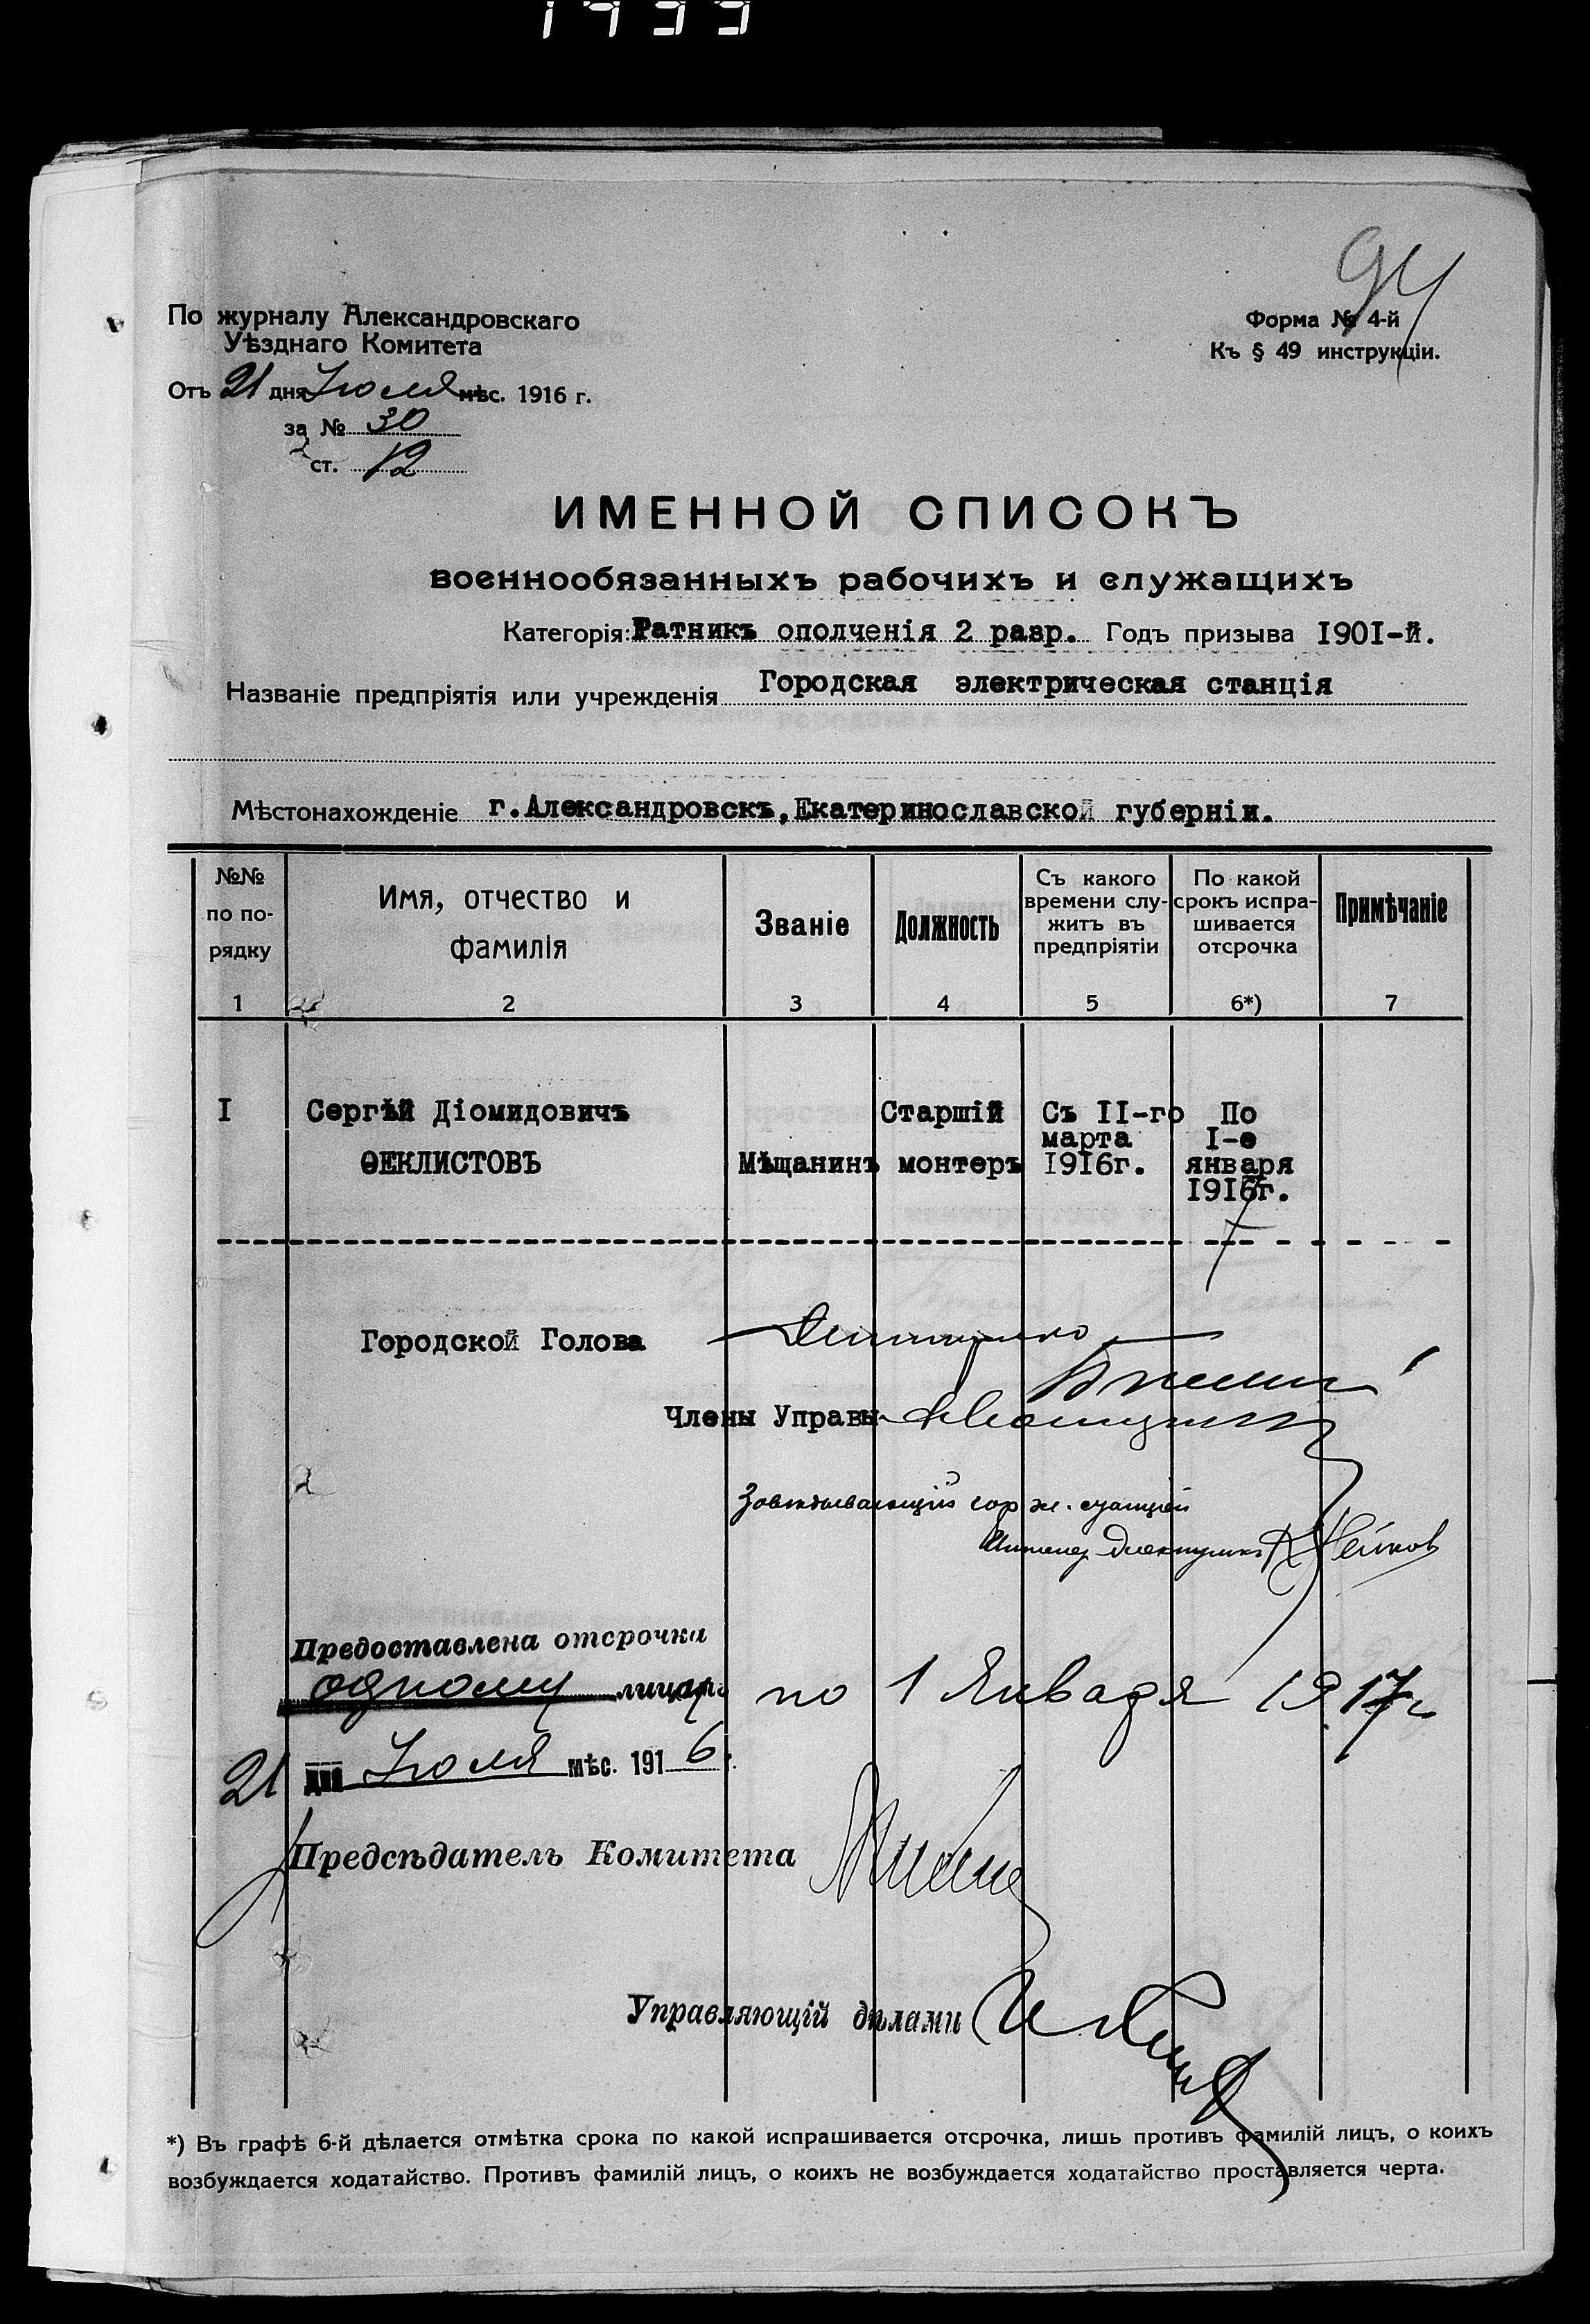 1933
94
По журналу Александровскаго
Уѣзднаго Комитета
Отъ 21 дня Іюля мѣс. 1916 г.
за № 30
ст. 12
Форма № 4-й
Къ § 49 инструкціи.
ИМЕННОЙ СПИСОКЪ
военнообязанныхъ рабочихъ и служащихъ
Категорія: Ратникъ ополченія 2 разр. Годъ призыва 190I-й.
Названіе предпріятія или учрежденія Городская электрическая станція
Мѣстонахожденіе г.Александровскъ,Екатеринославской губерніи.
№№ по по-рядку
Имя, отчество и фамилія
Званіе
Должность
Съ какого времени слу-житъ въ предпріятіи
По какой срокъ испра-шивается отсрочка
Примѣчаніе
1 2 3 4 5 6*) 7
I
Сергѣй Діомидовичъ
ѲЕКЛИСТОВЪ
Мѣщанинъ
Старшій
монтеръ
Съ II-го
марта
1916г.
По
I-е
января
1917г.
Городской Голова
Члены Управы
Завѣдывающій гор эл. станціей
Инженер Электрикъ
Предоставлена отсрочка
одному лицу по 1 Января 1917 г.
21 дня Іюля мѣс. 1916 г.
Предсѣдатель Комитета
Управляющій дѣлами
*) Въ графѣ 6-й дѣлается отмѣтка срока по какой испрашивается отсрочка, лишь противъ фамилій лицъ, о коихъ
возбуждается ходатайство. Противъ фамилій лицъ, о коихъ не возбуждается ходатайство проставляется черта.